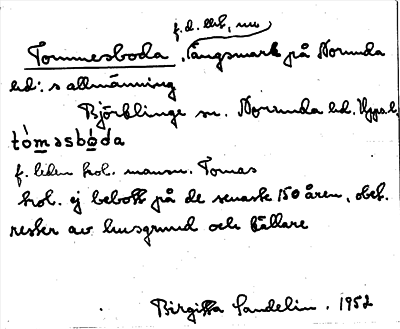 f.d. bit, nu
Tommesboda, skogsmark på Norunda
hd:s allmänning
Björklinge sn. Norunda hd. Uppl.
tòmasbóda
f. liden kol. mansn. Tomas
kol. ej bebott på de senaste 150 åren, obet.
rester av husgrund och källare
Birgitta Sandelin. 1952